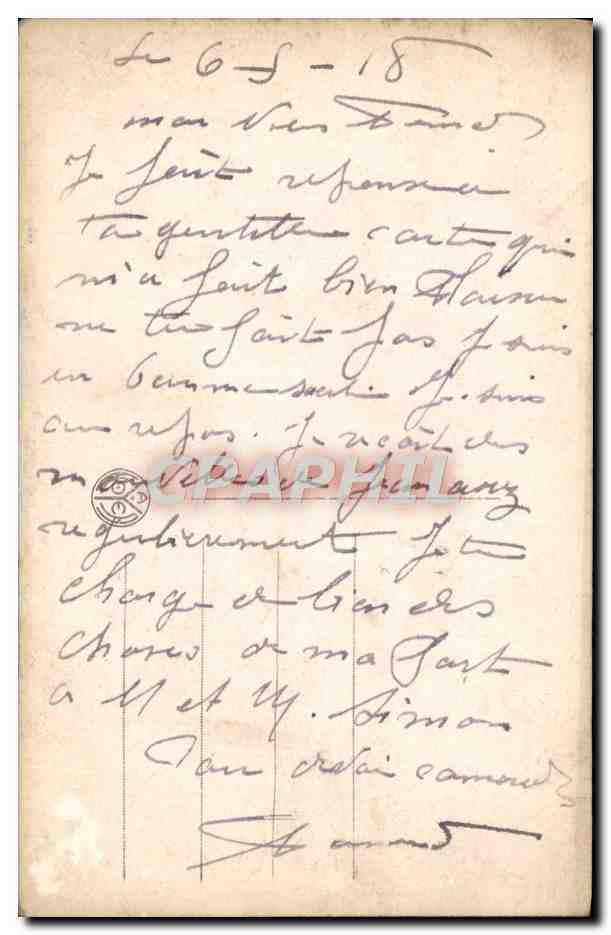 Le 6-5-18
mon vieux
Je fait reponse a
ta gentille carte qui
m'a fait bien plaisir
ne t'en fait pas je suis
en bonne santé je suis
au repos. Je reçoit des
nouvelles de
CPAPHIL
regulierement Je te
charge de bien des
choses de ma part
a M et M. Simon
Ton camarade